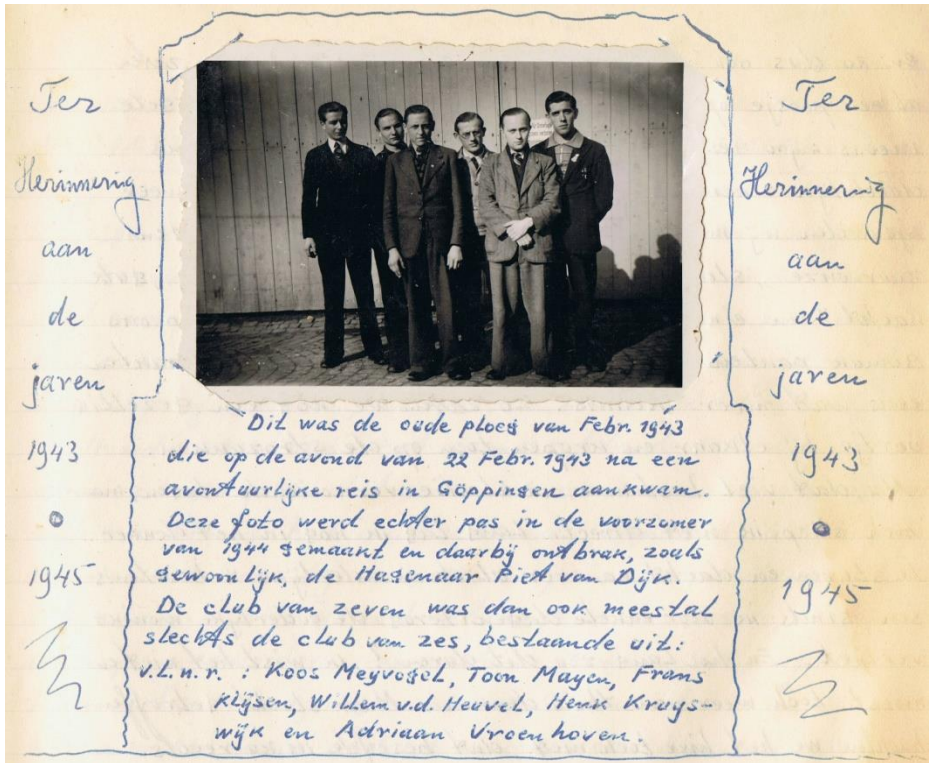 Ter
Herinnering
aan
de
jaren
1943
1945
Ter
Herinnering
aan
de
jaren
1943
1945
Dit was de oude ploeg van Febr. 1943
die op de avond van 22 Febr. 1943 na een
avontuurlijke reis in Göppingen aankwam.
Deze foto werd echter pas in de voorzomer
van 1944 gemaakt en daarbij ontbrak, zoals
gewoonlijk, de Hagenaar Piet van Dijk.
De club van zeven was dan ook meestal
slechts de club van zes, bestaande uit:
v.l.n.r. : Koos Meyvogel, Toon Mayen, Frans
Klijsen, Willem v.d. Heuvel, Henk Kruys-
wijk en Adriaan Vroenhoven.